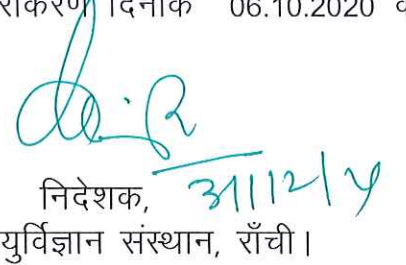 राकरण दिनांक 06.10.2020 व
निदेशक,
युर्विज्ञान संस्थान, राँची।